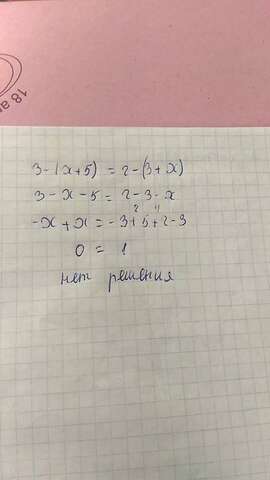 18 ап
3-(x+5) = 2-(3+x)
3-x-5 = 2-3-x
-x+x = -3+5+2-3
0 = 1
нет решения